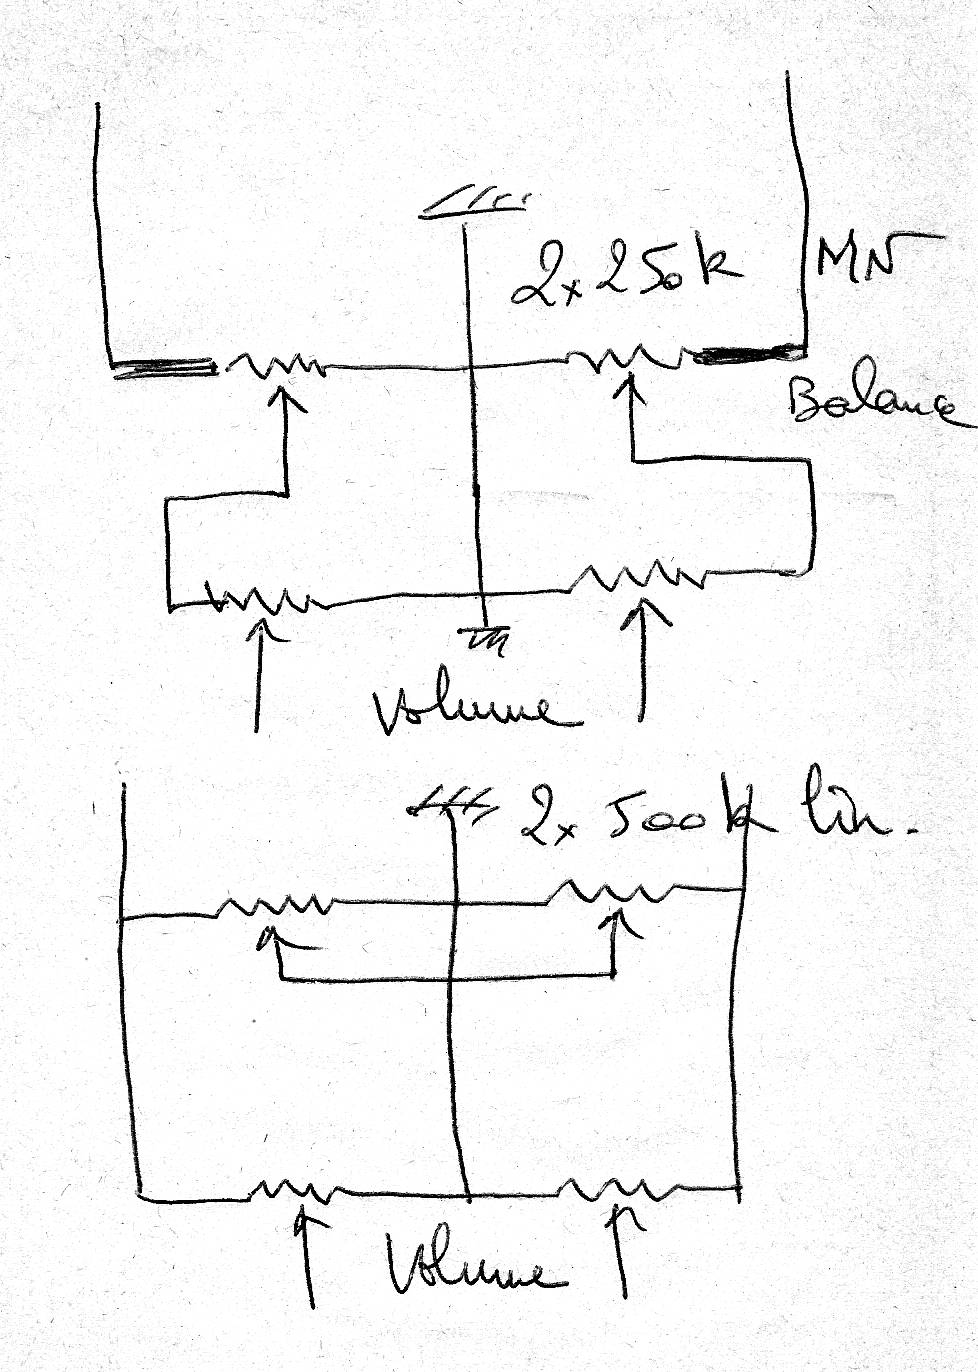 2x250k MN
Balance
Volume
2x 500k lin.
Volume